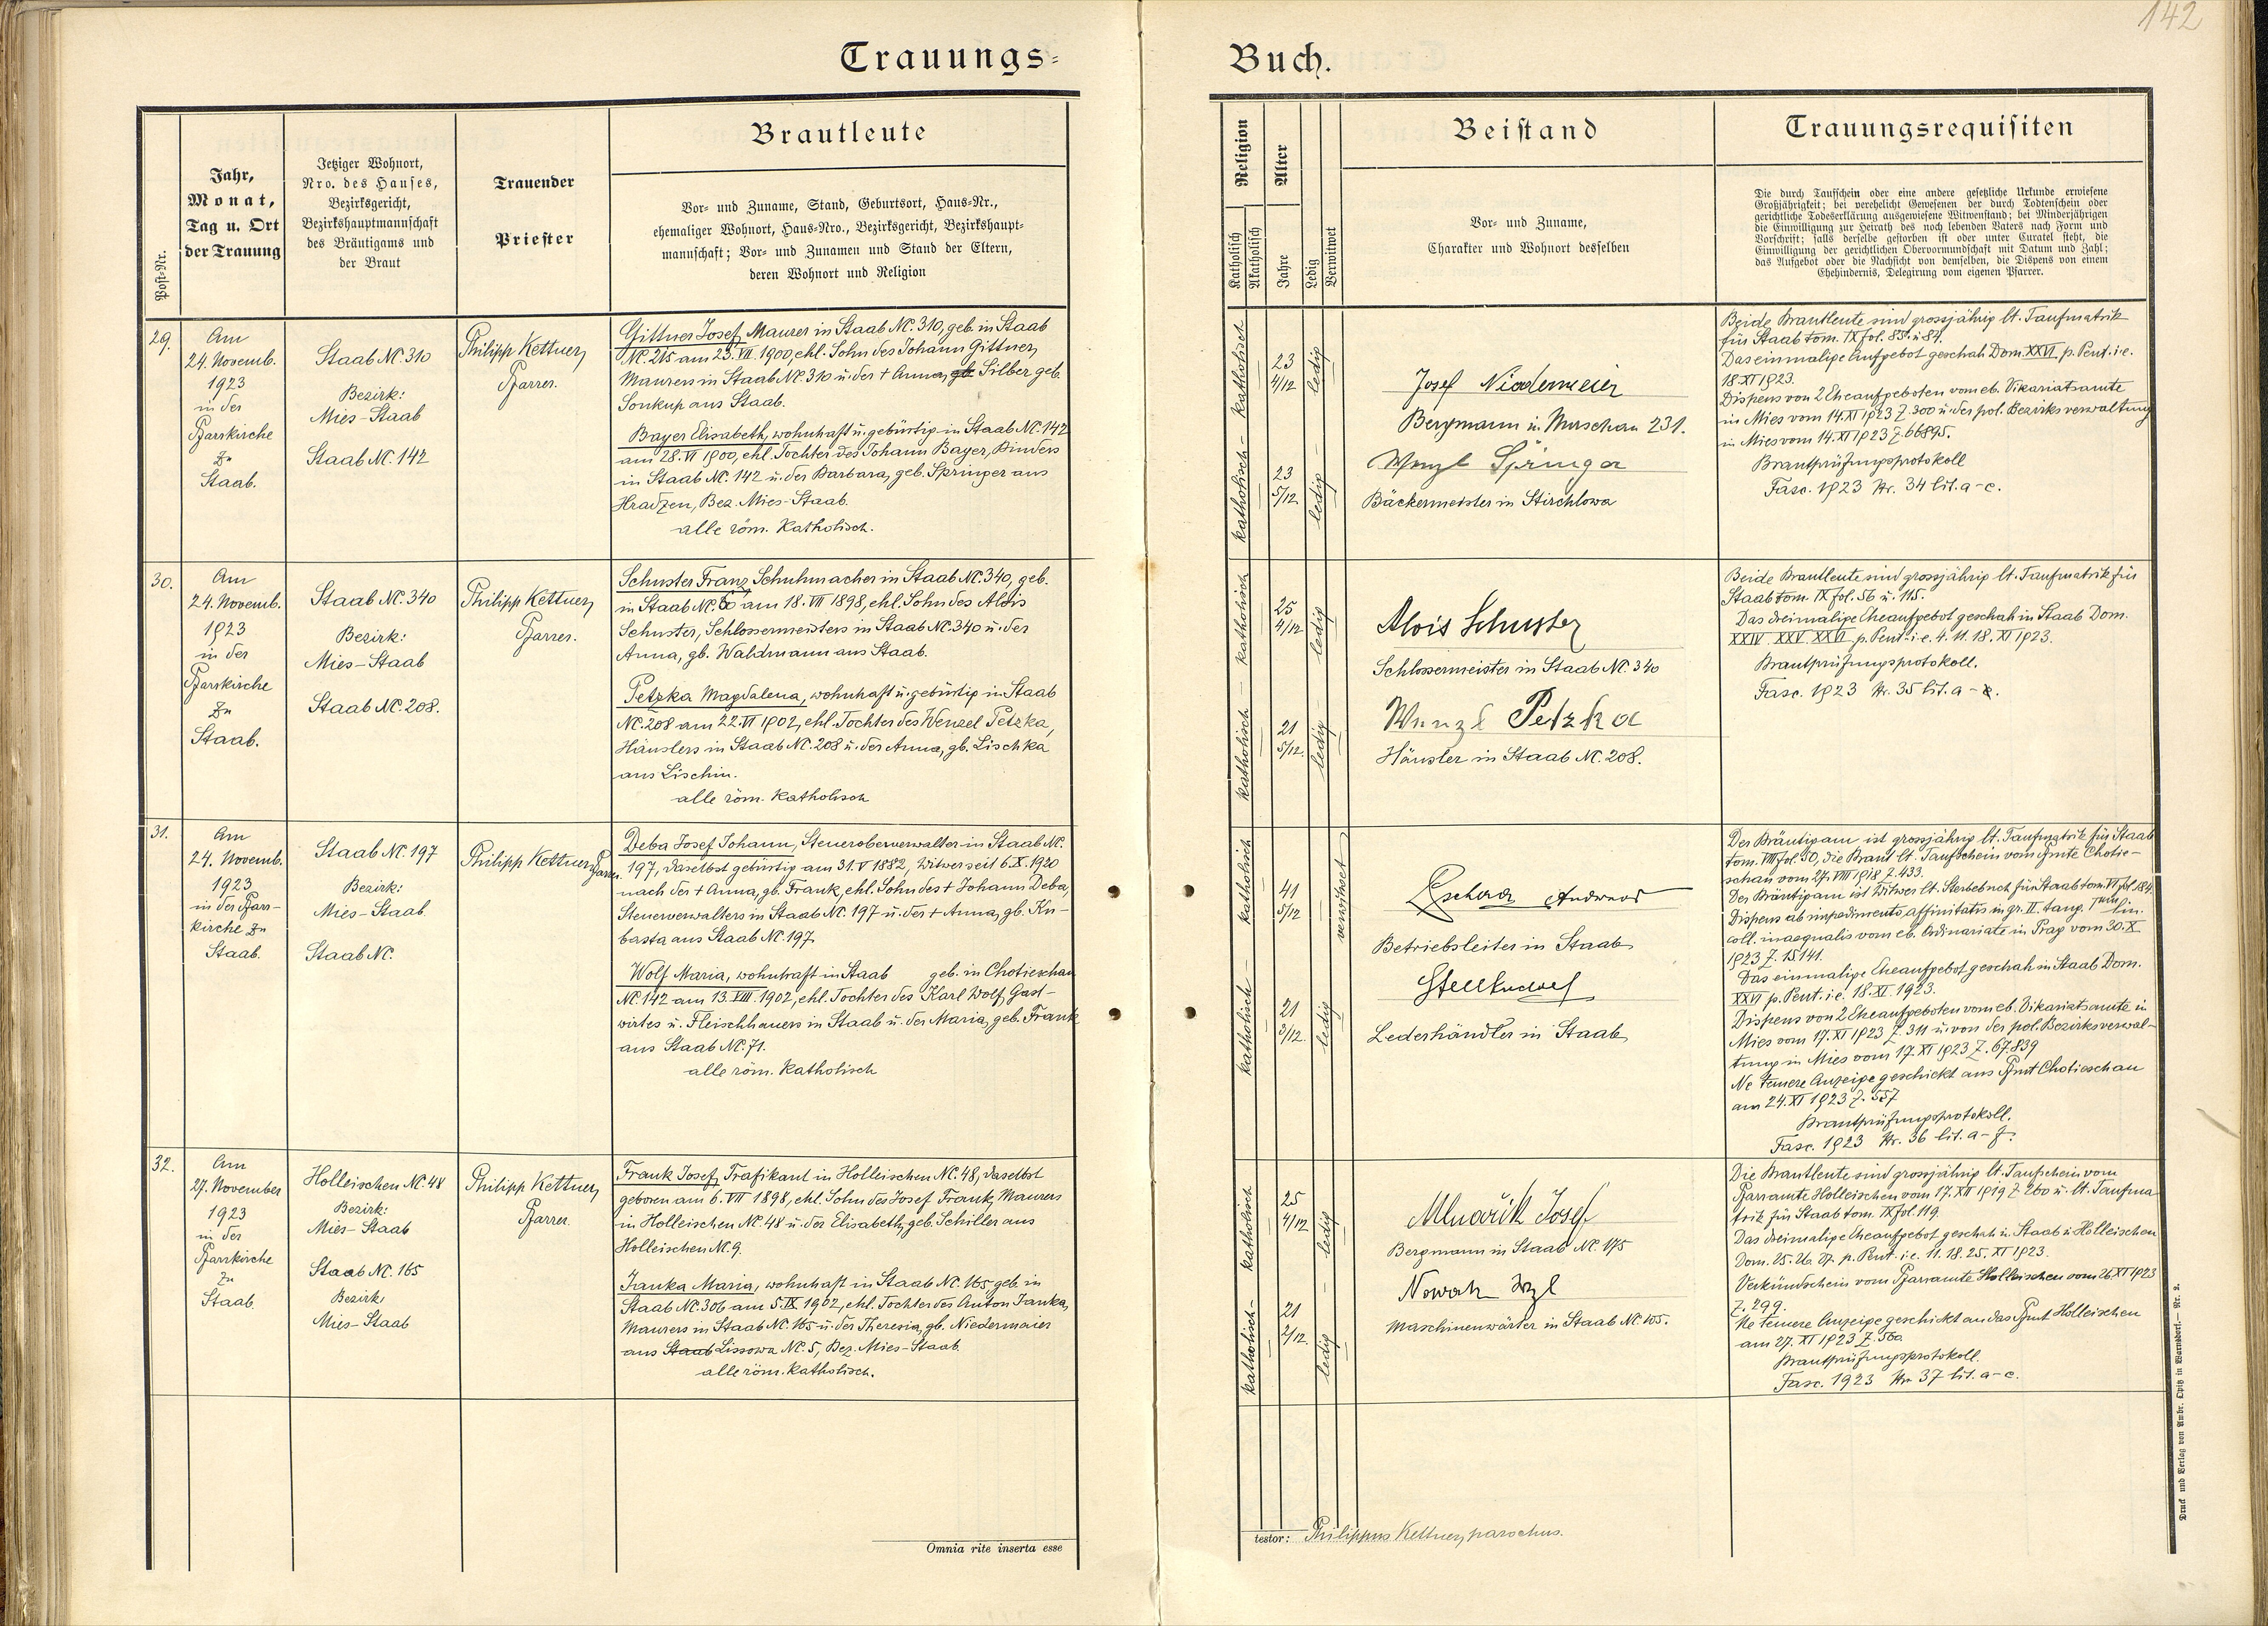 142
Trauungs-
Buch.
Post-Nr.
Jahr,
Monat,
Tag u. Ort
der Trauung
Jetziger Wohnort,
Nro. des Hauses,
Bezirksgericht,
Bezirkshauptmannschaft
des Bräutigams und
der Braut
Trauender
Priester
Brautleute
Vor- und Zuname, Stand, Geburtsort, Haus-Nr.,
ehemaliger Wohnort, Haus-Nro., Bezirksgericht, Bezirkshaupt-
mannschaft; Vor- und Zunamen und Stand der Eltern,
deren Wohnort und Religion
Religion
Katholisch
Akatholisch
Alter
Jahre
Ledig
Verwitwet
Beistand
Vor- und Zuname,
Charakter und Wohnort desselben
Trauungsrequisiten
Die durch Taufschein oder eine andere gesetzliche Urkunde erwiesene
Großjährigkeit; bei verehelicht Gewesenen der durch Todtenschein oder
gerichtliche Todeserklärung ausgewiesene Witwenstand; bei Minderjährigen
die Einwilligung zur Heirath des noch lebenden Vaters nach Form und
Vorschrift; falls derselbe gestorben ist oder unter Curatel steht, die
Einwilligung der gerichtlichen Obervormundschaft mit Datum und Zahl;
das Aufgebot oder die Nachsicht von demselben, die Dispens von einem
Ehehindernis, Delegirung vom eigenen Pfarrer.
29.
Am
24. Novemb.
1923
in der
Pfarrkirche
zu
Staab.
Staab NC. 310
Bezirk:
Mies-Staab
Staab NC. 142
Philipp Kettner,
Pfarrer.
Gittner Josef, Maurer in Staab NC. 310, geb. in Staab
NC. 215 am 23. VII. 1900, ehl. Sohn des Johann Gittner,
Maurers in Staab NC. 310 u. der + Anna, gb. Silber geb.
Soukup aus Staab.
Bayer Elisabeth, wohnhaft u. gebürtig in Staab NC. 142
am 28. VI 1900, ehl. Tochter des Johann Bayer, Binders
in Staab NC. 142 u. der Barbara, geb. Springer aus
Hradzen, Bez. Mies-Staab.
alle röm. Katholisch.
katholisch - katholisch
23
4/12
ledig
23
5/12
ledig
Josef Niedermeier
Bergmann in Murschau 231.
Wenzl Springer
Bäckermeister in Stirchlowa
Beide Brautleute sind grossjährig lt. Taufmatrik
für Staab tom. IX fol. 85. u. 84.
Das einmalige Aufgebot geschah Dom. XXVI. p. Pent. i.e.
18. XI 1923.
Dispens von 2 Eheaufgeboten vom eb. Vikariatsamte
in Mies vom 14. XI 1923 Z. 300 u. der pol. Bezirksverwaltung
in Mies vom 14. XI 1923 Z. 66895.
Brautprüfungsprotokoll
Fasc. 1923 Nr. 34 lit. a-c.
30.
Am
24. Novemb.
1923
in der
Pfarrkirche
zu
Staab.
Staab NC. 340
Bezirk:
Mies-Staab
Staab NC. 208.
Philipp Kettner,
Pfarrer.
Schuster Franz, Schuhmacher in Staab NC. 340, geb.
in Staab NC. am 18. VII 1898, ehl. Sohn des Alois
Schuster, Schlossermeisters in Staab NC. 340 u. der
Anna, gb. Waldmann aus Staab.
Petzka Magdalena, wohnhaft u. gebürtig in Staab
NC. 208 am 22. VI 1902, ehl. Tochter des Wenzel Petzka,
Häuslers in Staab NC. 208 u. der Anna, gb. Lischka
aus Lischin.
alle röm. Katholisch
katholisch - katholisch
25
4/12
ledig
21
5/12.
ledig
Alois Schuster
Schlossermeister in Staab NC. 340
Wenzl Petzka
Häusler in Staab NC. 208.
Beide Brautleute sind grossjährig lt. Taufmatrik für
Staab tom. IX fol. 56 u. 115.
Das dreimalige Eheaufgebot geschah in Staab Dom.
XXIV. XXV. XXVI. p. Pent. i.e. 4. 11. 18. XI 1923.
Brautprüfungsprotokoll.
Fasc. 1923 Nr. 35 lit. a -
31.
Am
24. Novemb.
1923
in der Pfarr-
kirche zu
Staab.
Staab NC. 197
Bezirk:
Mies-Staab
Staab NC.
Philipp Kettner, Pfarrer.
Deba Josef Johann, Steueroberverwalter in Staab NC.
197, daselbst gebürtig am 31. V 1882, Witwer seit 6. X. 1920
nach der + Anna, gb. Frank, ehl. Sohn des + Johann Deba,
Steuerverwalters in Staab NC. 197 u. der + Anna, gb. Ku-
basta aus Staab NC. 197
Wolf Maria, wohnhaft in Staab geb. in Chotieschau
NC. 142 am 13. VIII. 1902, ehl. Tochter des Karl Wolf, Gast-
wirtes u. Fleischhauers in Staab u. der Maria, geb. Frank
aus Staab NC. 71.
alle röm. Katholisch
katholisch - katholisch
41
5/12
verwitwet
21
3/12.
ledig
Andreas
Betriebsleiter in Staab
Lederhändler in Staab
Der Bräutigam ist grossjährig lt. Taufmatrik für Staab
tom. VIII fol. 50, die Braut lt. Taufschein vom Pfmte Chotie-
schau vom 27. VIII 1918 Z. 433.
Der Bräutigam ist Witwer lt. Sterbebuch für Staab tom. VI fol. 184.
Dispens ab impedimento affinitatis in gr. II. tang. Imum lin.
coll. inaequalis vom eb. Ordinariate in Prag vom 30. X.
1923 Z. 15141.
Das einmalige Eheaufgebot geschah in Staab Dom.
XXVI p. Pent. i.e. 18. XI. 1923.
Dispens von 2 Eheaufgeboten vom eb. Vikariatsamte in
Mies vom 17. XI 1923 Z. 311 u. von der pol. Bezirksverwal-
tung in Mies vom 17. XI 1923 Z. 67.839
Ne temere Anzeige geschickt ans Pfmt Chotieschau
am 24. XI 1923 Z. 557
Brautprüfungsprotokoll.
Fasc. 1923 Nr. 36 lit. a-
32.
Am
27. November
1923
in der
Pfarrkirche
zu
Staab.
Holleischen NC. 48
Bezirk:
Mies-Staab
Staab NC. 165
Bezirk:
Mies-Staab
Philipp Kettner,
Pfarrer.
Frank Josef, Trafikant in Holleischen NC. 48, daselbst
geboren am 6. VII 1898, ehl. Sohn des Josef Frank, Maurers
in Holleischen NC. 48 u. der Elisabeth, geb. Schiller aus
Holleischen NC. 9.
Janka Maria, wohnhaft in Staab NC. 165, geb. in
Staab NC. 306 am 5. IX 1902, ehl. Tochter des Anton Janka,
Maurers in Staab NC. 165 u. der Theresia, gb. Niedermaier
aus Staab Lissowa NC. 5, Bez. Mies-Staab.
alle röm. katholisch.
katholisch - katholisch
25
4/12
ledig
21
2/12.
ledig
Mlnařik Josef
Bergmann in Staab NC. 175
Nowak Wzl
Maschinenwärter in Staab NC. 105.
Die Brautleute sind grossjährig lt. Taufschein vom
Pfarramte Holleischen vom 17. XII 1919 Z. 260 u. lt. Taufma
trik für Staab tom. IX fol. 119.
Das dreimalige Eheaufgebot geschah in Staab u. Holleischen
Dom. 25. 26. 27. p. Pent. i.e. 11. 18. 25. XI 1923.
Verkündschein vom Pfarramte Holleischen vom 26. XI 1923
Z. 299.
Ne temere Anzeige geschickt an das Pfmt Holleischen
am 27. XI 1923 Z. 560
Brautprüfungsprotokoll.
Fasc. 1923 Nr. 37 lit. a-c.
Omnia rite inserta esse
testor: Philippus Kettner, parochus.
Druck und Verlag von Ambr. Opitz in Warnsdorf.— Nr. 2.